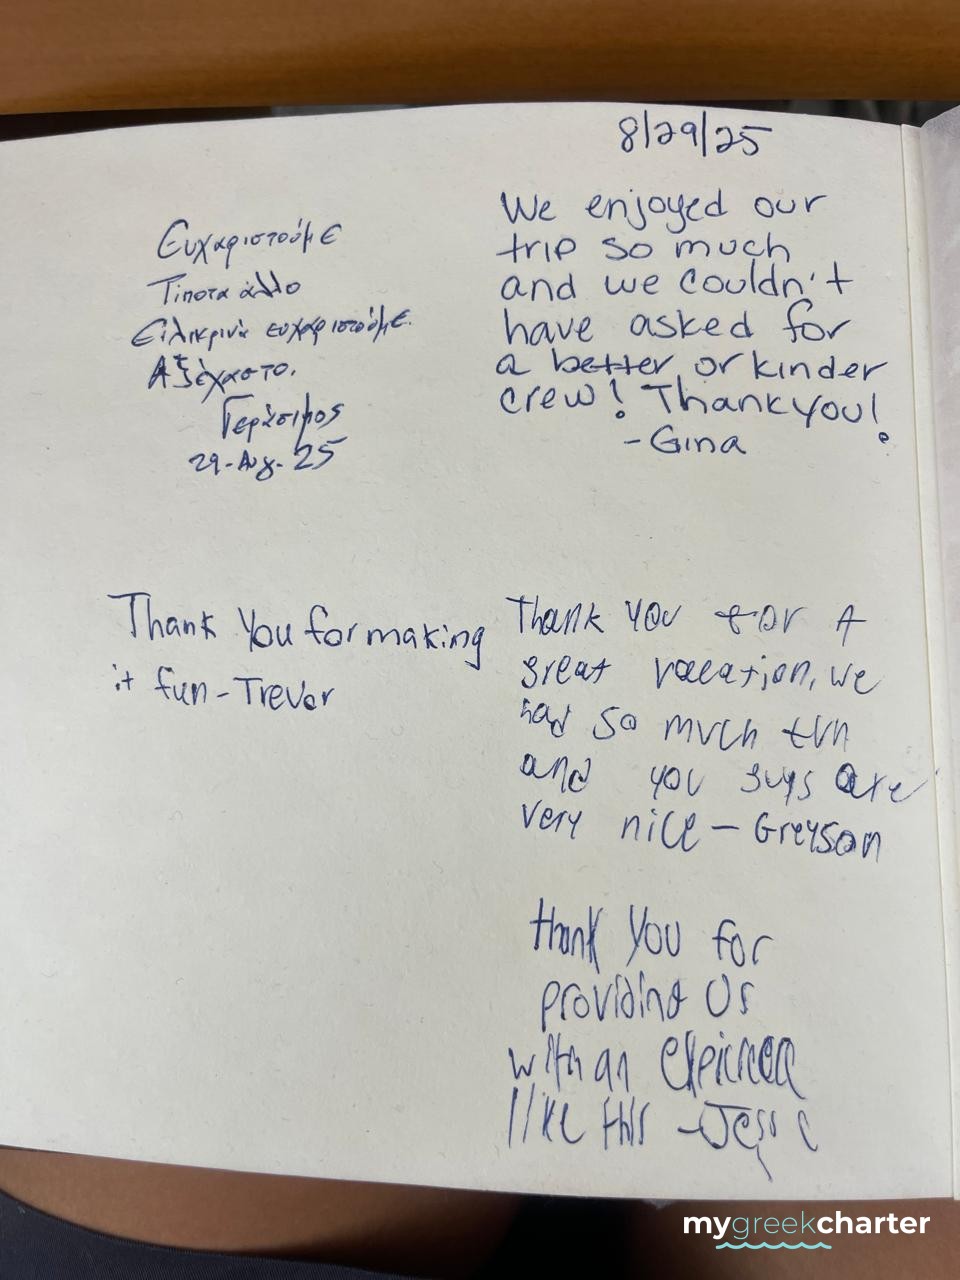 8/29/25
Ευχαριστούμε
Τίποτα άλλο
Ειλικρινά ευχαριστούμε.
Αξέχαστο.
Γεράσιμος
29-Αυγ-25
We enjoyed our
trip so much
and we couldn't
have asked for
a better or kinder
crew! Thank you!
-Gina
Thank you for making
it fun - Trevor
Thank you for A
great vacation, we
had so much fun
and you guys are
very nice - Greyson
thank you for
providing us
with an
like this - Jesse
mygreekcharter